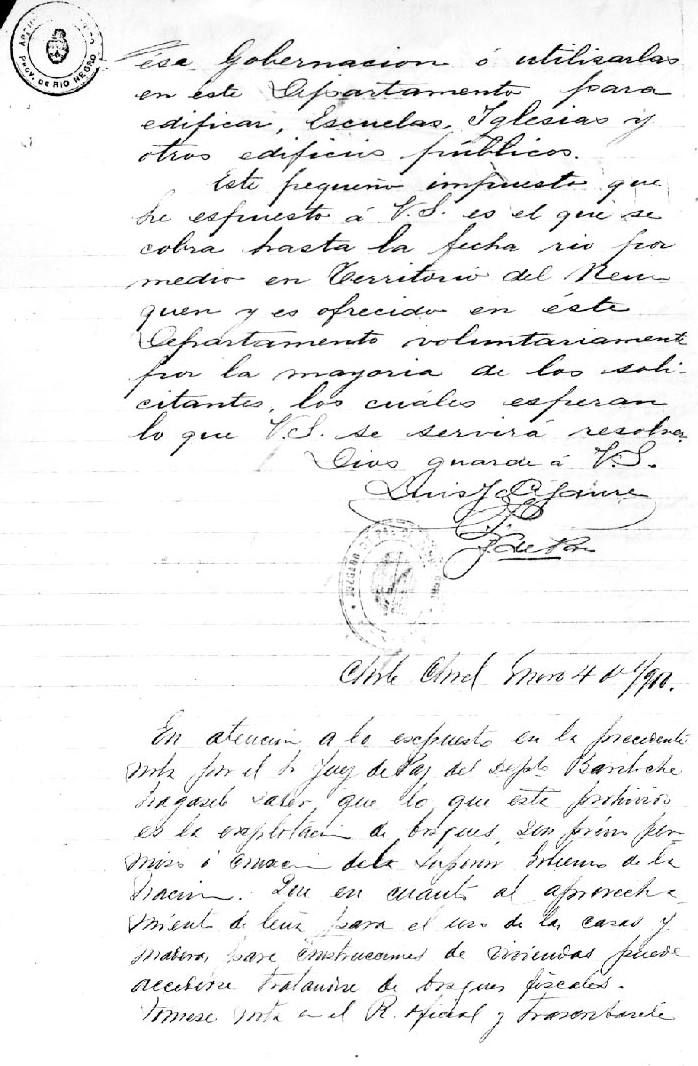 PROV. DE RIO NEGRO
ésa Gobernacion ó utilizarlas
en este Departamento para
edificar, Escuelas, Iglesias y
otros edificios públicos.
Este pequeño impuesto que
he espuesto á V.S. es el que se
cobra hasta la fecha rio por
medio en Territorio del Neu-
quen y es ofrecido en éste
Departamento voluntariamente
por la mayoria de los soli-
citantes, los cuáles esperan
lo que V.S. se servirá resolver.
Dios guarde á V.S.
Luis
J. de Paz
JUZGADO DE PAZ
Enero 4 de
En atencion a lo expuesto en la precedente
nota por el Sr Juez de Paz del Depto Bariloche
hagasele saber que lo que esta prohibido
es la explotacion de bosques, sin previo per-
miso ó de la Superior Gobierno de la
Nacion. Que en cuanto al aprovecha-
miento de leña para el uso de las casas y
madera para construcciones de viviendas puede
accederse tratandose de bosques fiscales.
Tomese nota en el R. Oficial y